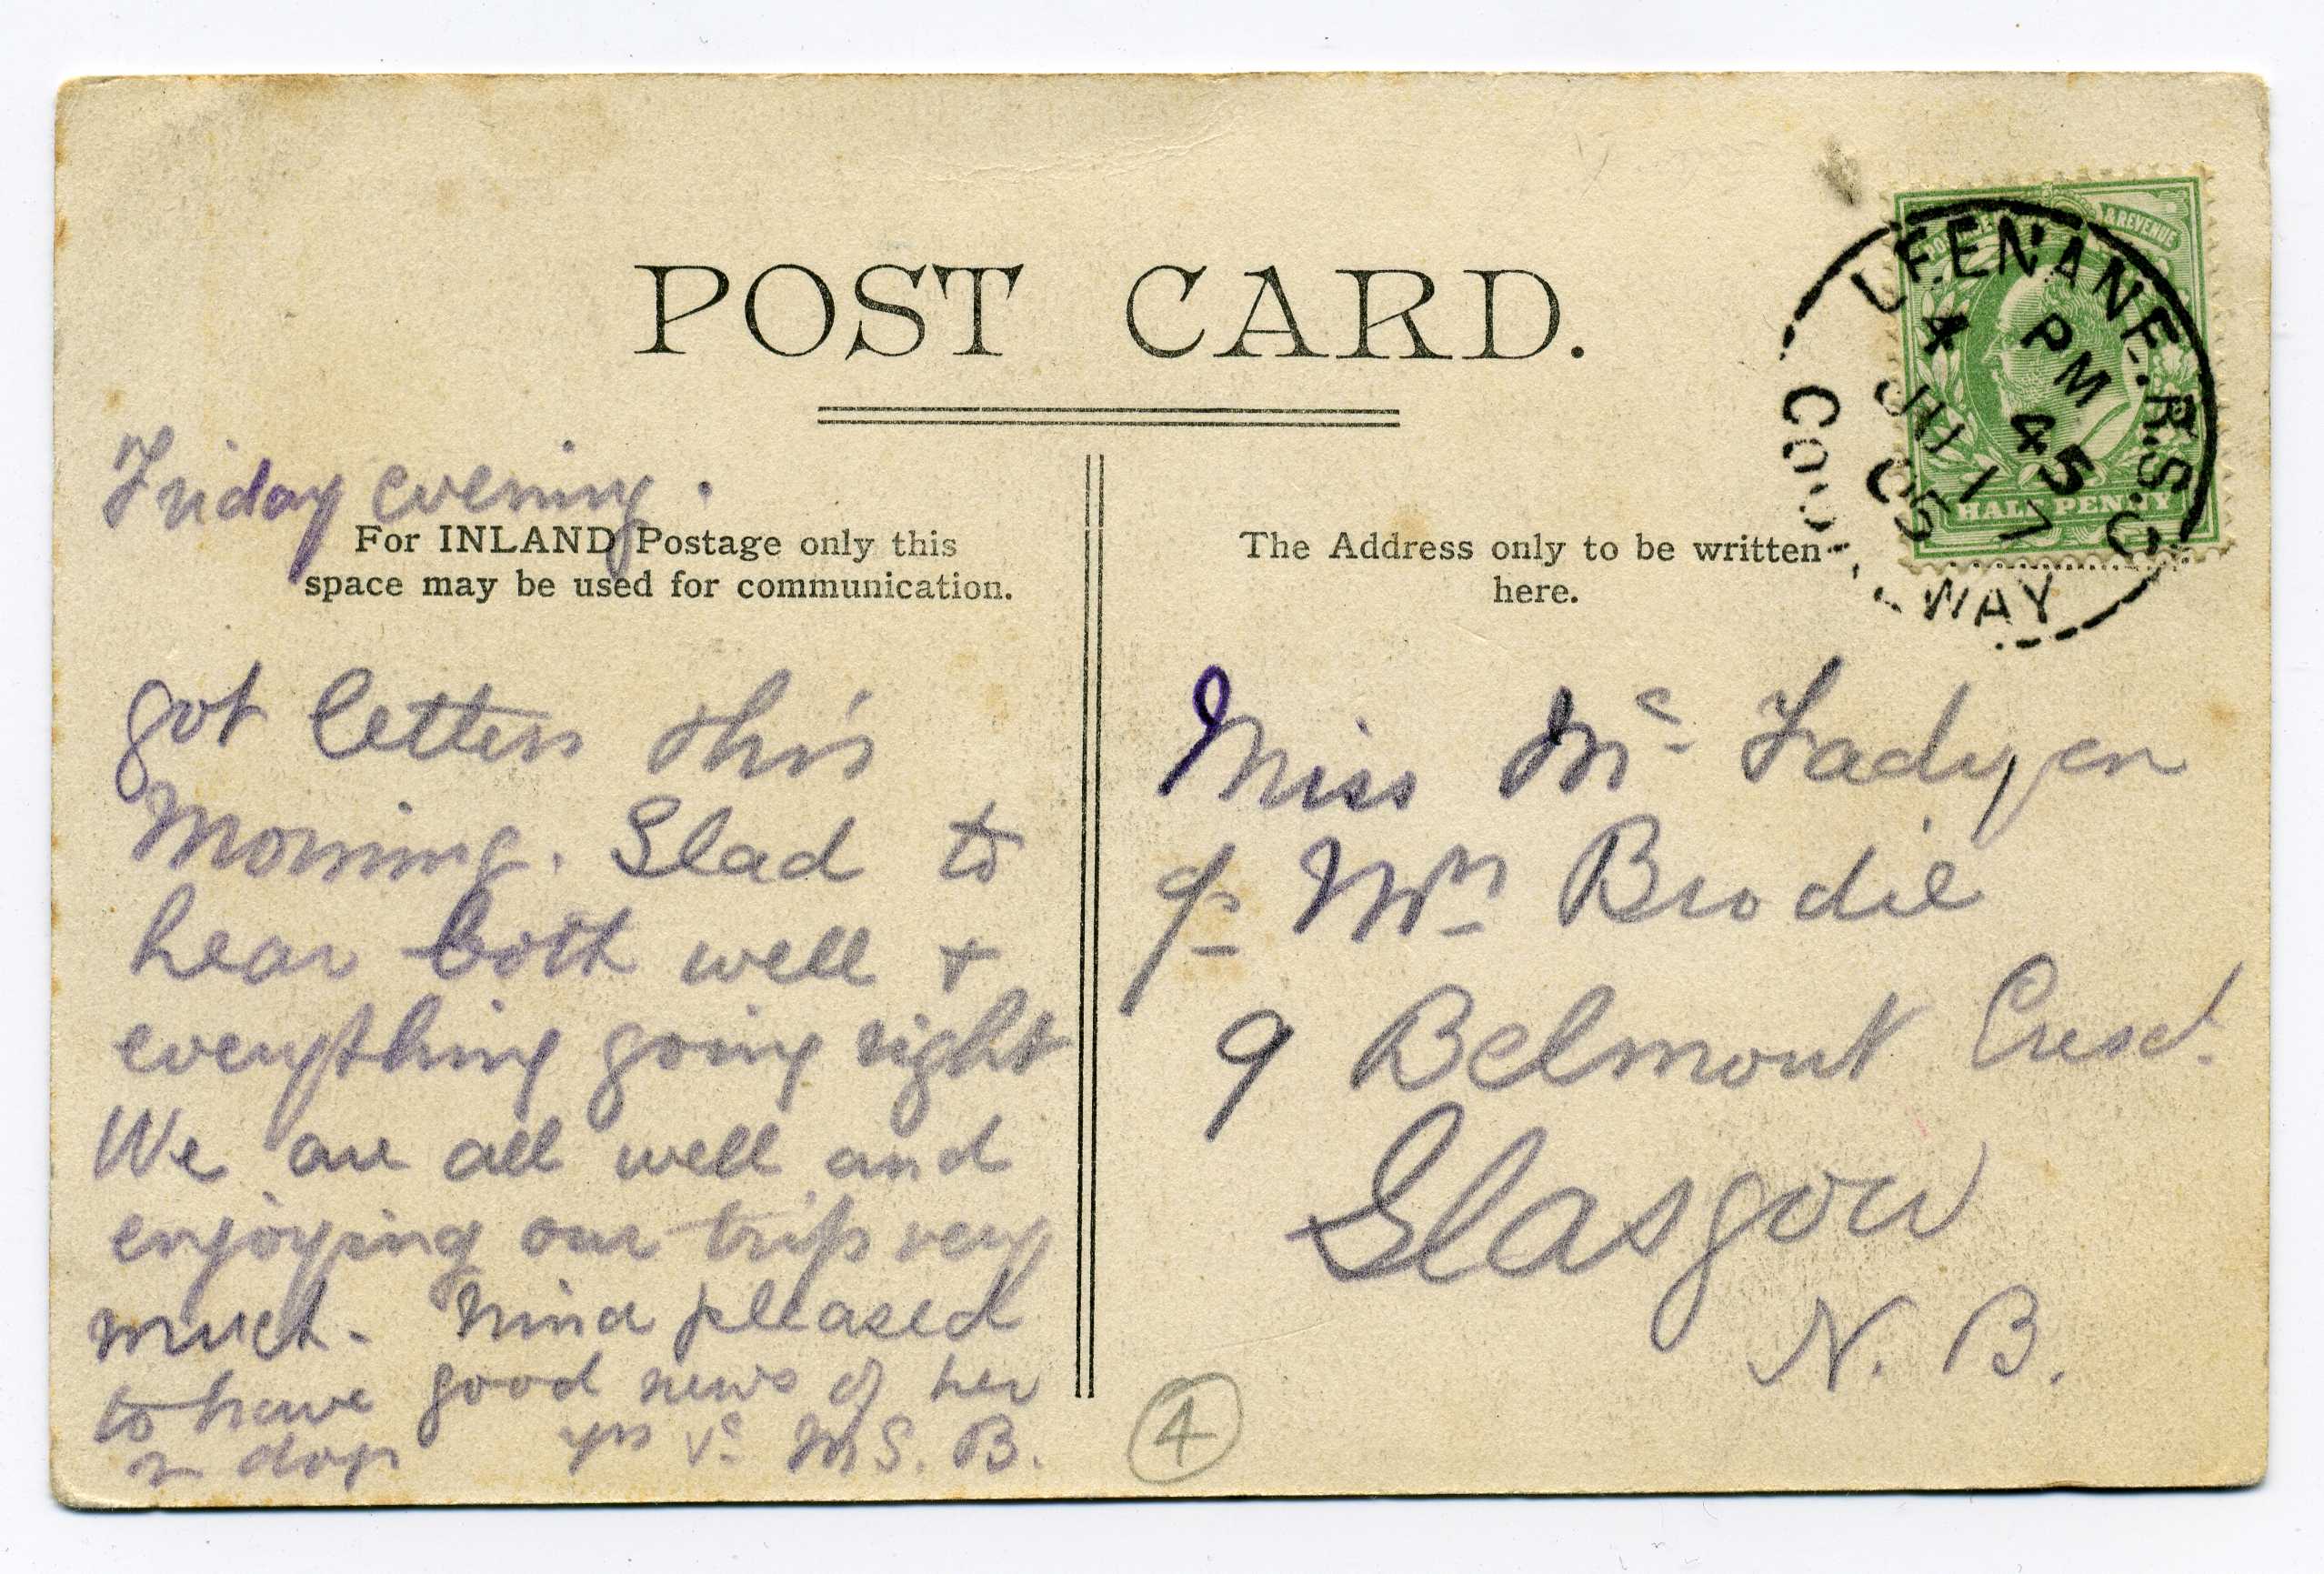 POST CARD.
POSTAGE & REVENUE
HALF PENNY
LEENANE. R.S.O
4 45 PM
JU 17
05
CO. WAY
Friday evening.
For INLAND Postage only this
space may be used for communication.
got letters this
Morning. Glad to
hear both well +
everything going right
We are all well and
enjoying our trip very
much. Nina pleased
to have good news of her
2 dogs yrs M S. B.
The Address only to be written
here.
Miss Mc Fadyen
c/o Mrs Brodie
9 Belmont Cresct.
Glasgow
N. B.
4